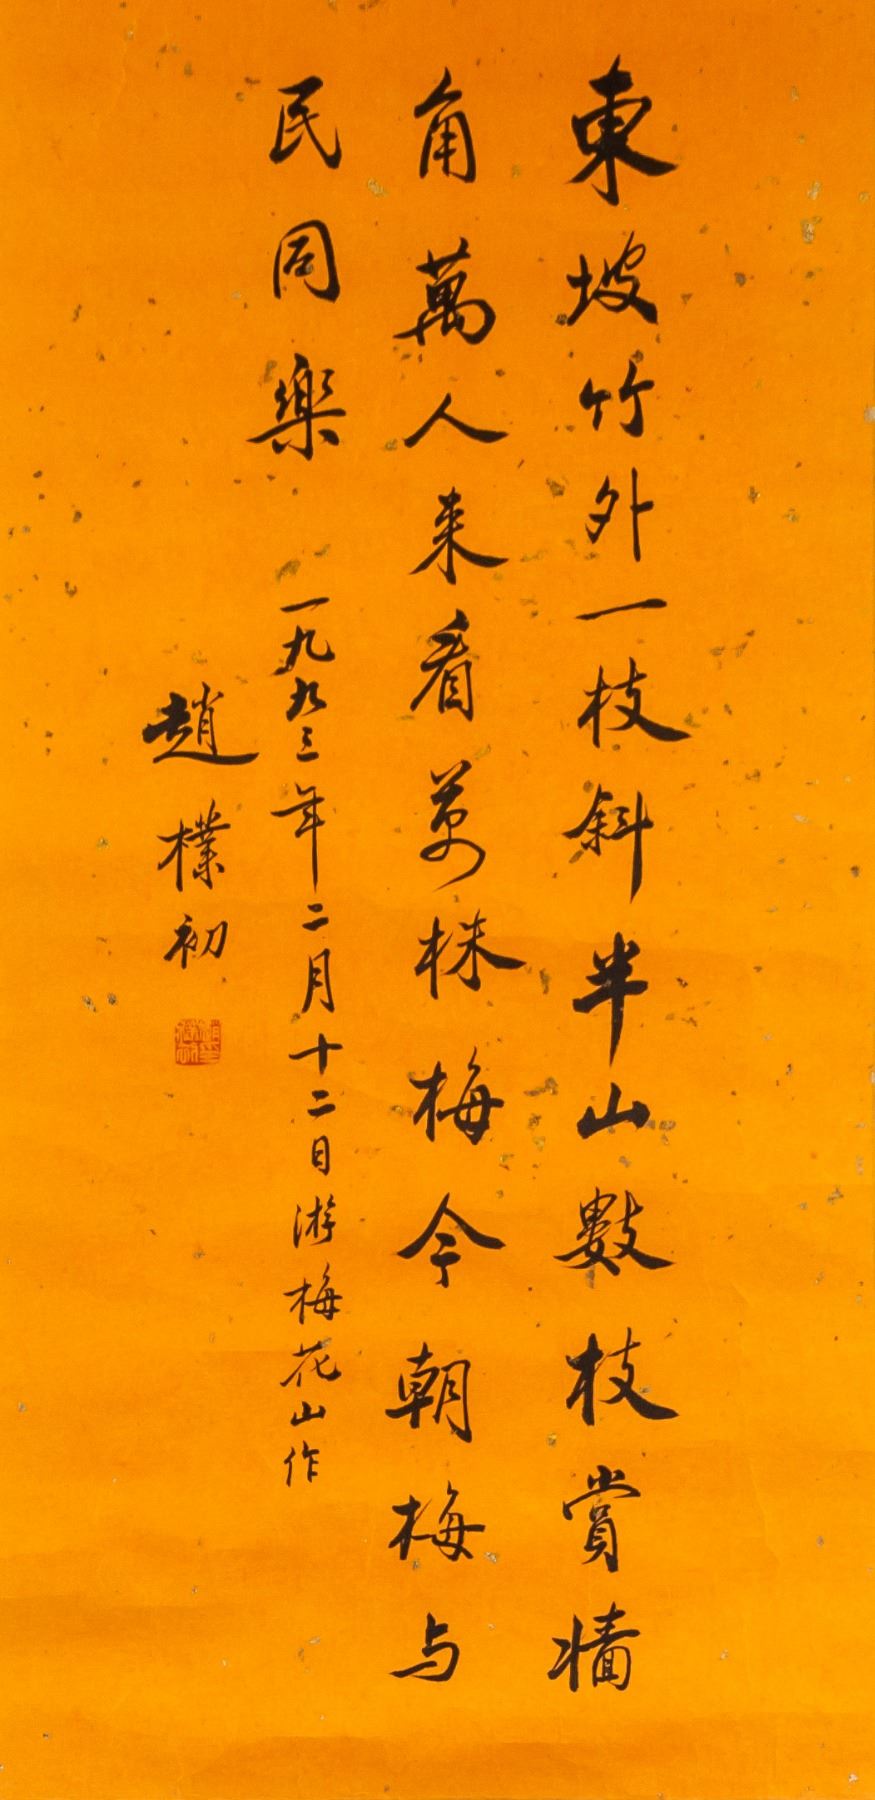 東坡竹外一枝斜半山數枝賞牆
角萬人来看萬株梅今朝梅与
民同樂
一九九三年二月十二日游梅花山作
趙樸初